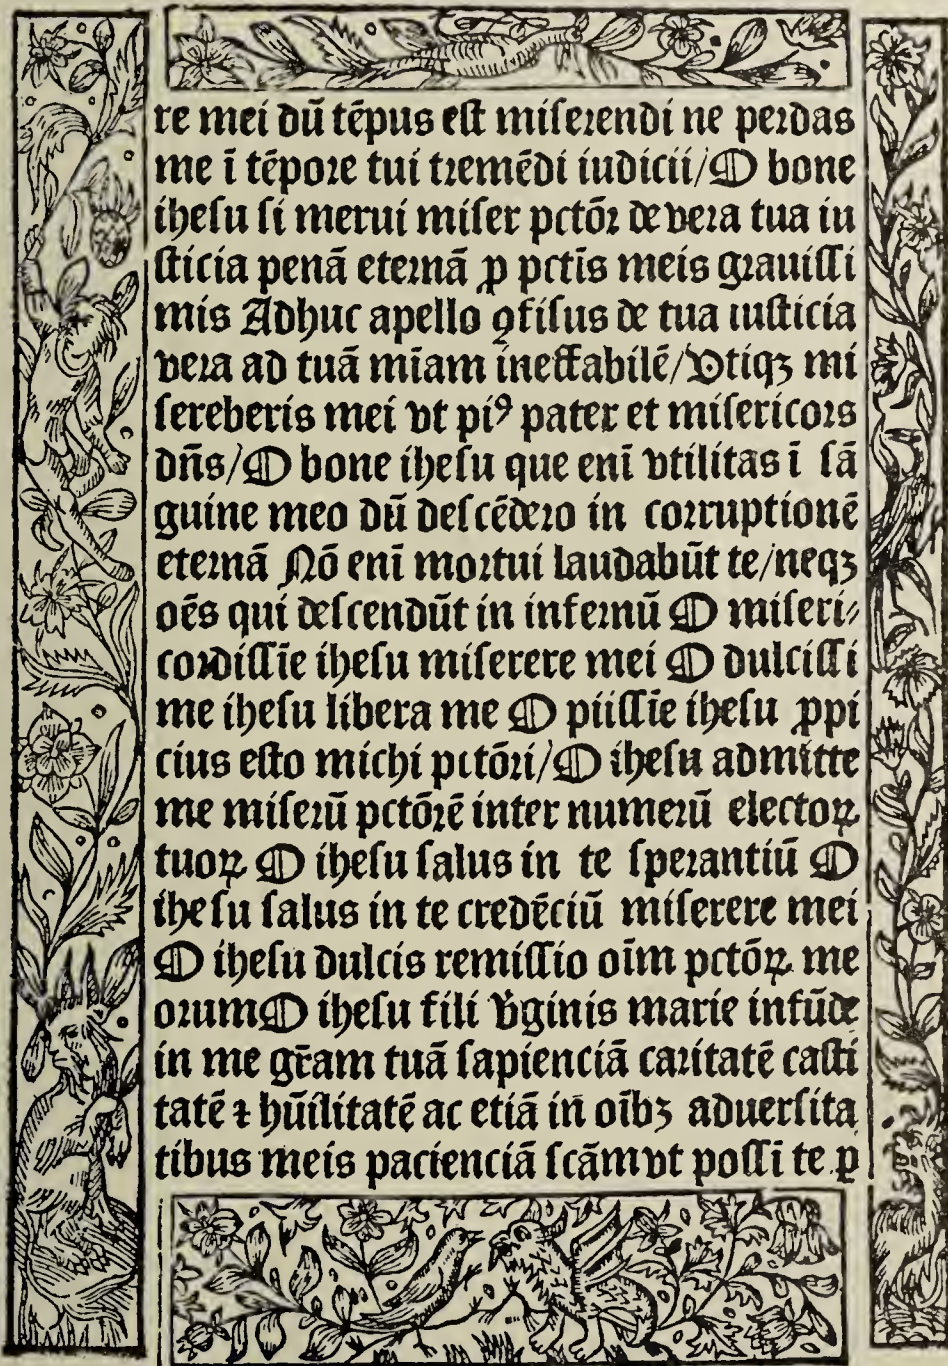 re mei dū tēpus est miserendi ne perdas
me ī tēpore tui tremēdi iudicii/O bone
ihesu si merui miser pctōr de vera tua iu
sticia penā eternā ꝓ pctīs meis grauissi
mis Adhuc apello ꝯfisus de tua iusticia
vera ad tuā mīam ineffabilē/Vtiqꝫ mi
sereberis mei vt piꝰ pater et misericors
dn̄s/O bone ihesu que enī vtilitas ī sā
guine meo dū descēdero in corruptionē
eternā Nō enī mortui laudabūt te/neqꝫ
oēs qui descendūt in infernū O miseri⸗
cordissīe ihesu miserere mei O dulcissi
me ihesu libera me O piissīe ihesu ꝓpi
cius esto michi pctōri/O ihesu admitte
me miserū pctōrē inter numerū electoꝝ
tuoꝝ O ihesu salus in te sperantiū O
ihesu salus in te credēciū miserere mei
O ihesu dulcis remissio oīm pctōꝝ me
orum O ihesu fili v̄ginis marie infūde
in me gr̄am tuā sapienciā caritatē casti
tatē ⁊ hūilitatē ac etiā in oībꝫ aduersita
tibus meis pacienciā scām vt possi te ꝑ